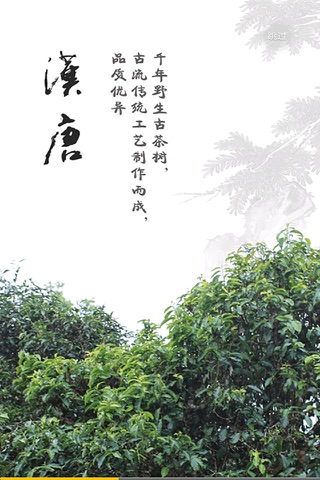 跳过
漢唐
千年野生古茶树，
古流传统工艺制作而成，
品质优异